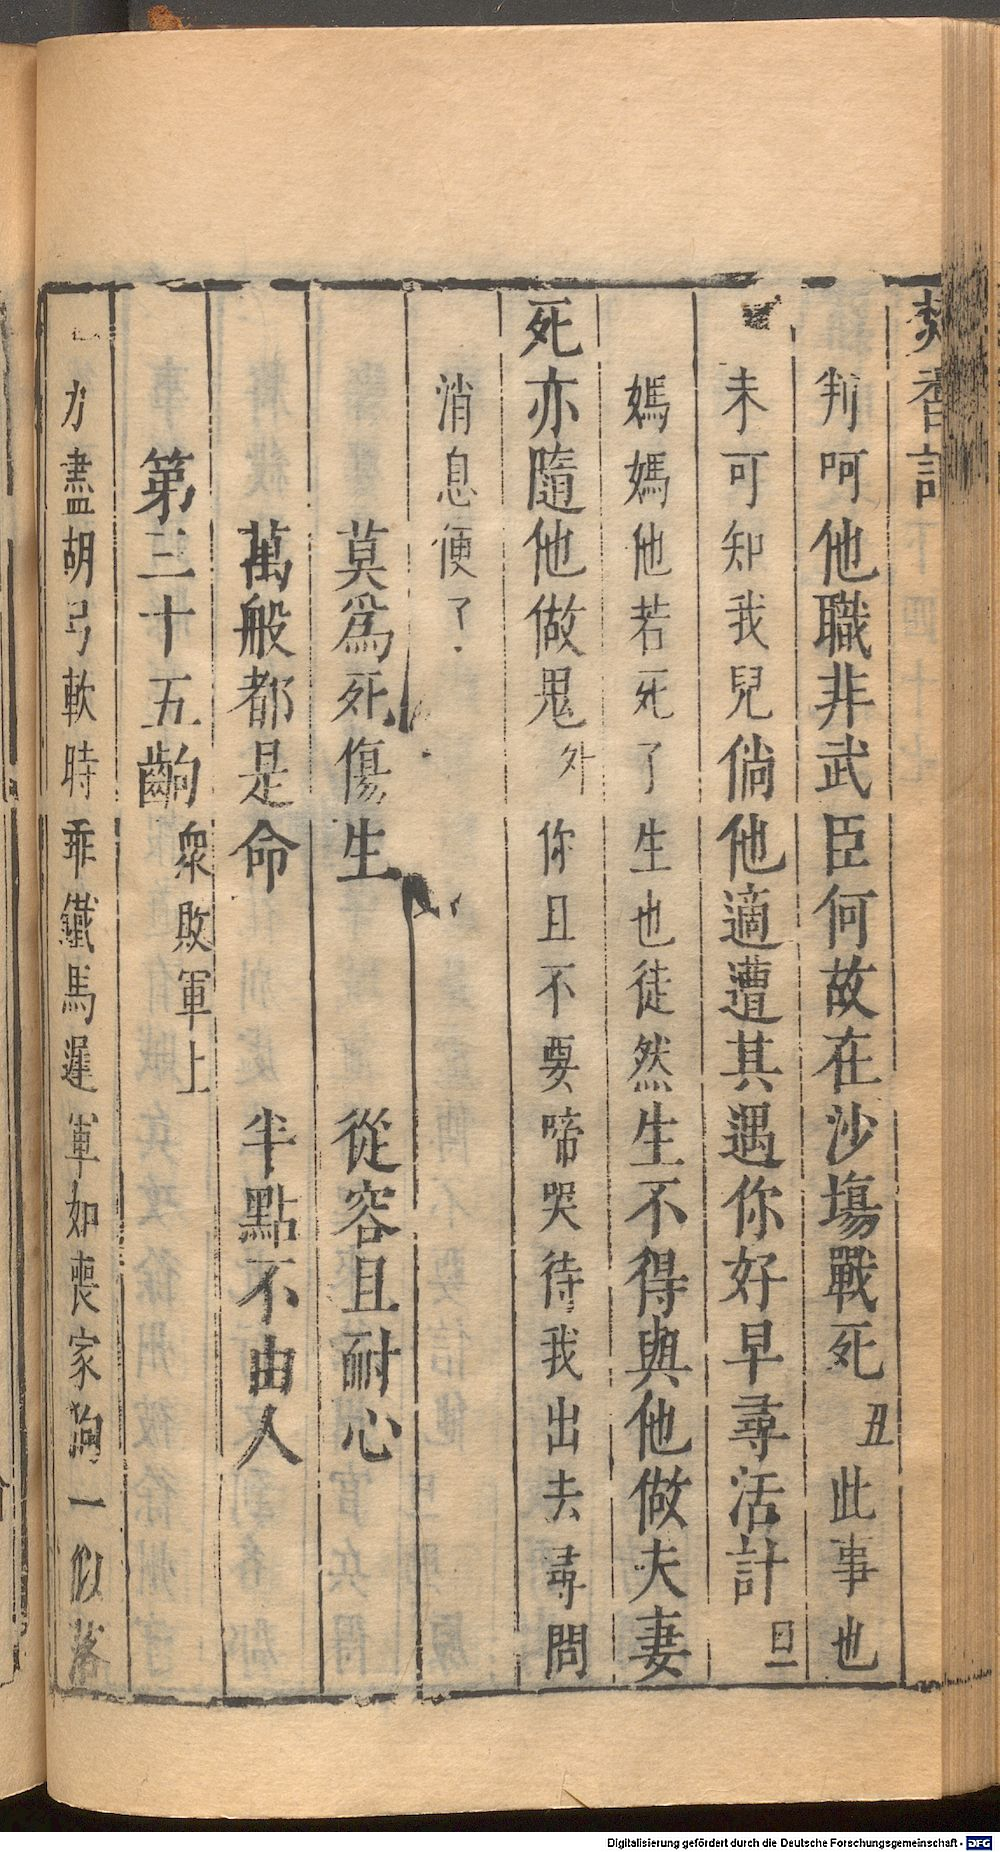 焚香記
下四十七
判呵他職非武臣何故在沙塲戰死丑此事也
未可知我兒倘他適遭其遇你好早尋活計旦
媽媽他若死了生也徒然生不得與他做夫妻
死亦隨他做鬼外你且不要啼哭待我出去尋問
消息便了
莫爲死傷生 從容且耐心
萬般都是命 半點不由人
第三十五齣 衆敗軍上
力盡胡弓軟時乖鐵馬遲軍如喪家狗一似落
Digitalisierung gefördert durch die Deutsche Forschungsgemeinschaft - DFG